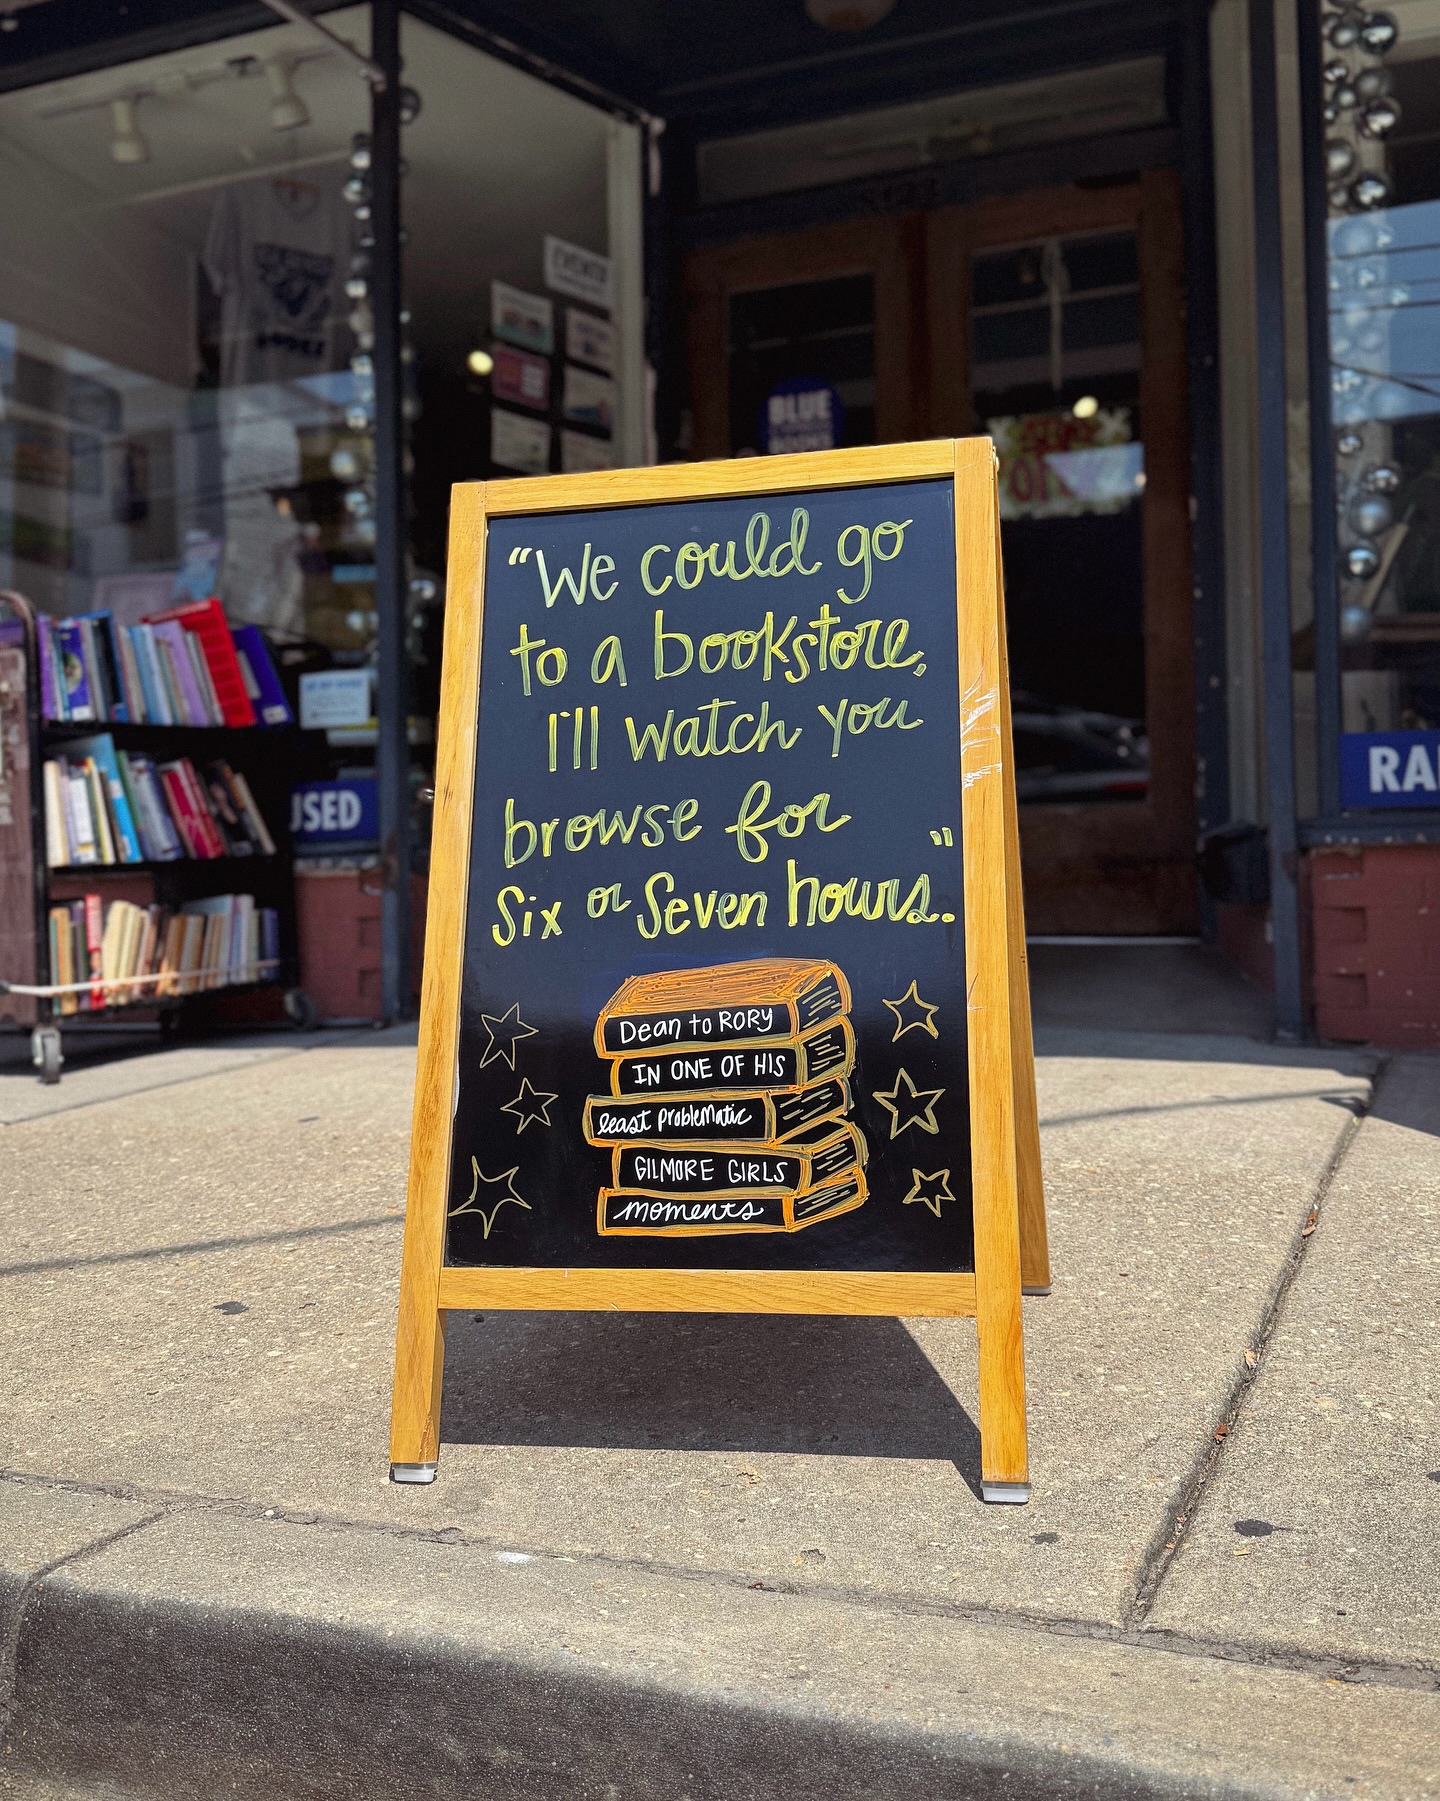 EVENTS
BLUE
BOOKS
OPEN
"We could go
to a bookstore,
I'll watch you
browse for
Six or Seven hours."
Dean to RORY
IN ONE OF HIS
least problematic
GILMORE GIRLS
moments
USED
RA